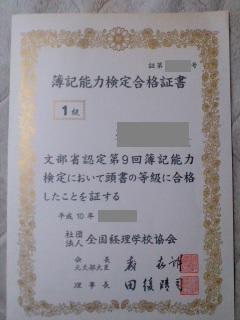 証第 号
簿記能力検定合格証書
1級
文部省認定第9回簿記能力
検定において頭書の等級に合格
したことを証する
平成10年
社団法人 全国経理学校協会
会長
元文部大臣
理事長